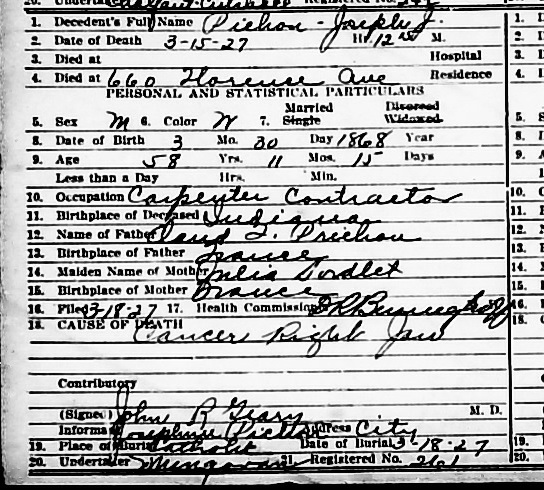 1. Decedent's Full Name Pichon - Joseph J.
2. Date of Death 3-15-27 Hr. 12 M.
3. Died at Hospital
4. Died at 660 Florence Ave Residence
PERSONAL AND STATISTICAL PARTICULARS
5. Sex M 6. Color W 7. Married Single Divorced Widowed
8. Date of Birth 3 Mo. 30 Day 1868 Year
9. Age 58 Yrs. 11 Mos. 15 Days
Less than a Day Hrs. Min.
10. Occupation Carpenter Contractor
11. Birthplace of Deceased Indiana
12. Name of Father Claud F. Prichon
13. Birthplace of Father France
14. Maiden Name of Mother Julia Sordlet
15. Birthplace of Mother France
16. Filed 3-18-27 17. Health Commiss
18. CAUSE OF DEATH
Cancer Right Jaw
Contributory
(Signed) John R Geary M. D.
Informa Josephine Address City
19. Place of Burial Catholic Date of Burial 3-18-27
20. Undertaker Mungovan 21. Registered No. 261